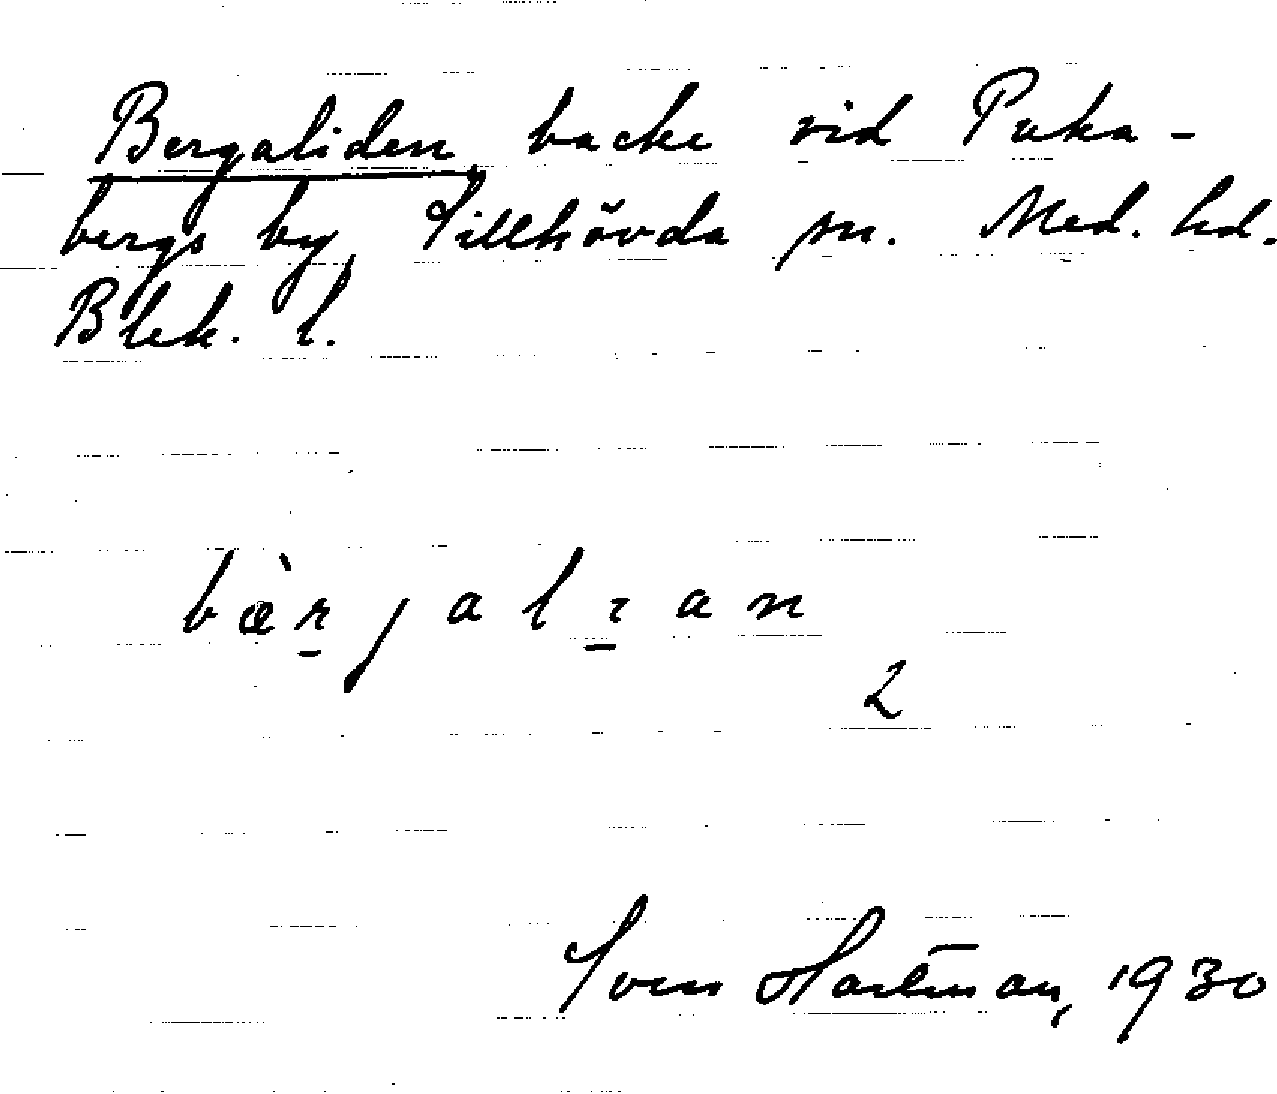 Bergaliden, backe vid Puka-
bergs by, Tillhövda sn. Med. hd.
Blek. l.
bæ̀rjalian
2
Sven Hartman, 1930